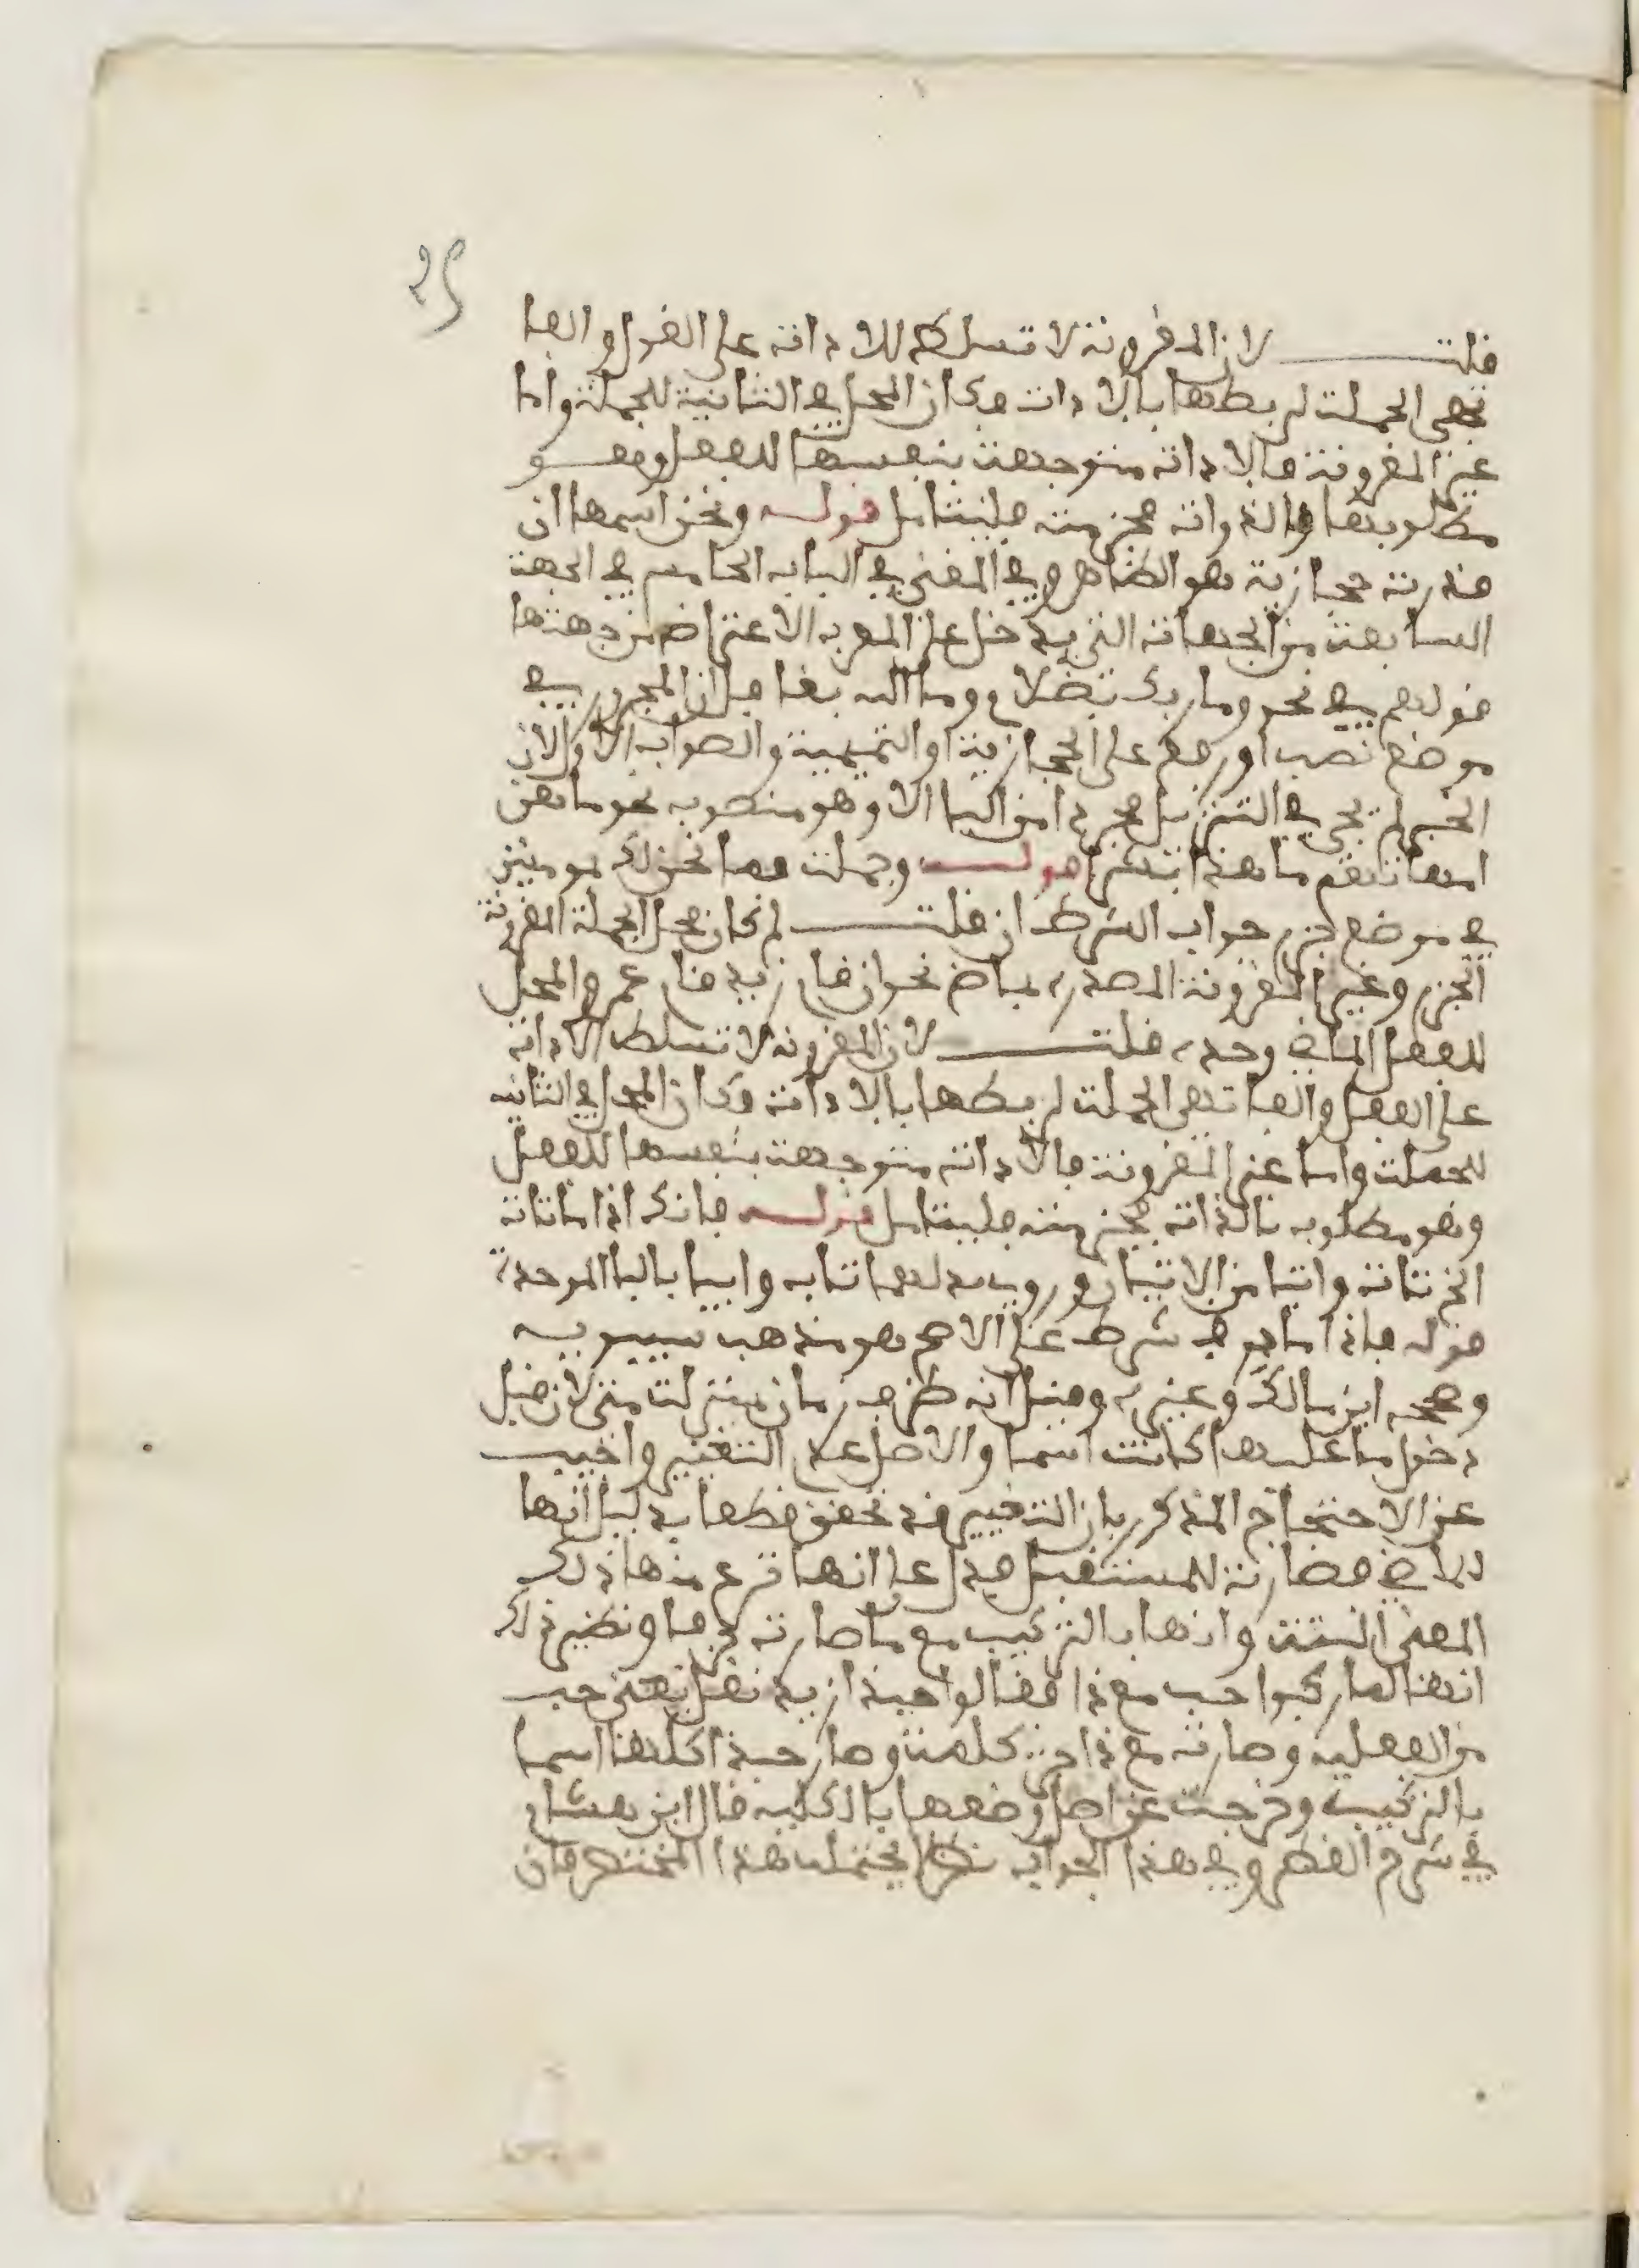 ٢٥
قلت لان المقرونة لا تسلط للاداة على القول والفا
تهيى الجملة لربطها بالاداة فكان المحل في الثانية للجملة واما
غير المقرونة فالاداة متوجهة بنفسها للفعل وهو
مطلوبها والذوات مجزمته فليتامل قوله ونحن اسمها ان
قدرت حجازية هو الظاهر وفي المغني في الباب الخامس في الجهة
السابعة من الجهات التي يدخل على المعرب الاعتراض من جهتها
قولهم في نحو وما ربك بظلام وما الله بغافل ان المجرور في
موضع نصب او رفع على الحجازية او التميمية والصواب الاول لان
الخبر لم يجي في التنزيل مجردا من الباء الا وهو منصوب نحو ما هن
امهاتهم ما هذا بشرا قوله وجملت فما نحن لك بمومنين
في موضع جزم جواب الشرط ان قلت لم كان محل الجملة المقرونة
الجزم وغير المقرونة المصدرة بماض نحو ان قام زيد قام عمرو المحل
للفعل الماضي وحده قلت لان المقرونة لا تسلط الاداة
على الفعل والفا تهي الجملة لربطها بالاداة وكان المحل في الثانيه
للجملة واما غير المقرونة فالاداة متوجهة بنفسها للفعل
وهو مطلوب بالذات بجزمته فليتامل قوله فانك اذاما تات
الخ تات واتيا من الاتيان وروي بدلهما تاب وابيا بالبا الموحدة
قوله فاذاما حرف شرط على الاصح هو مذهب سيبويه
وصححه ابن مالك وغيره وقيل انه ظرف زمان بمنزلت متى لان قبل
دخول ما عليها كانت اسما والاصل عدم التغيير واجيب
عن الاحتجاج المذكور بان التغيير قد تحقق قطعا بدليل انها
للماضي فصارت للمستقبل فدل على انها نزع منها ذلك
المعنى البتة وانها بالتركيب مع ما صارت حرفا ونظير ذلك
انها لما ركبوا حب مع ذا فقالوا حبذا زيد نقل بمعنى حب
من الفعلية وصارت مع ذا جزء كلمة وصار حبذا كلها اسما
بالتركيب وخرجت عن اصل وضعها بالكلية قال ابن هشام
في شرح القطر وفي هذا الجواب نظر لا يحتمله هذا المختصر فان